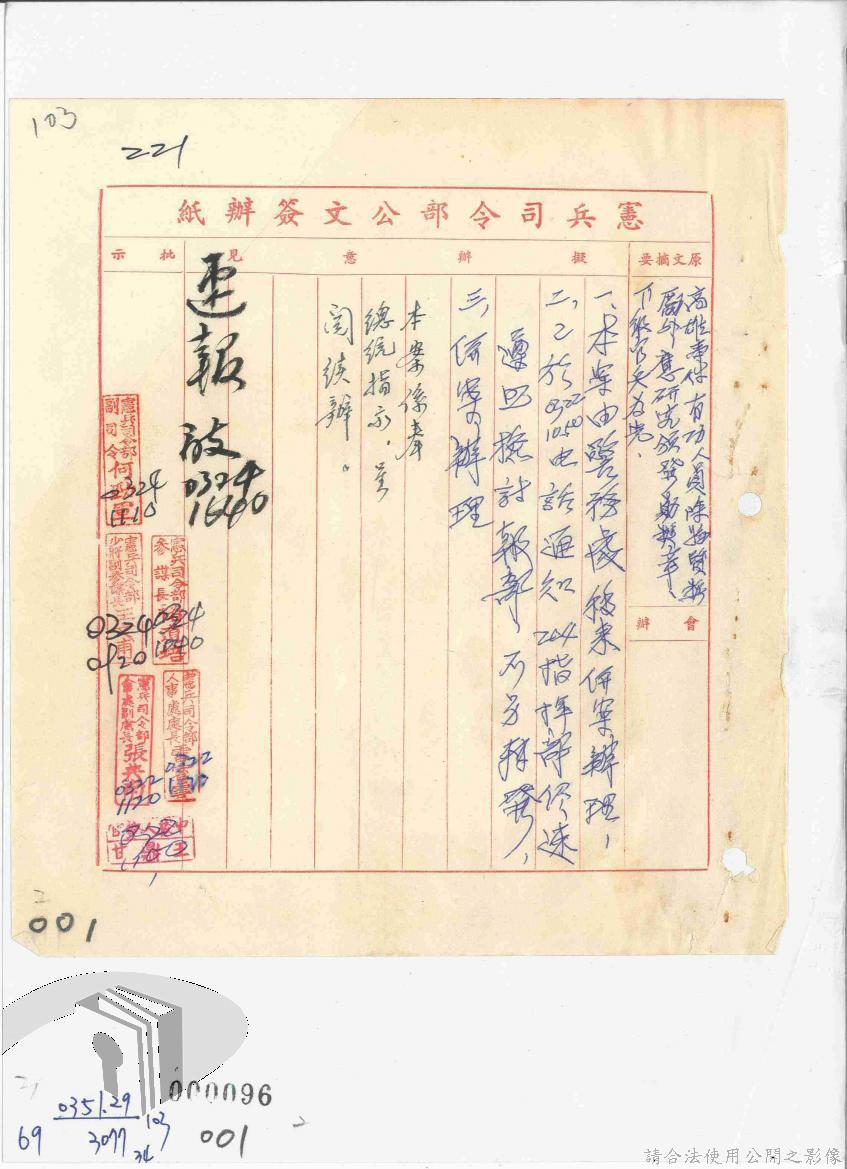 103
221
憲兵司令部公文簽辦紙
原文摘要
擬辦意見
批示
高雄事件有功人員除頒發獎
勵外，應研究頒發勛獎章、
下級官兵為先．
會辦
一、本案由警務處移來併案辦理，
二、已於0322 1050電話通知204指揮部儘速
遵照檢討報部，不另轉發，
三、併案辦理
本案係奉
總統指示，呈
閱後辦。
速報
0324
1640
憲兵司令部
副司令何
0324
1110
憲兵司令部
參謀長
0324
1040
憲兵司令部
少將副參謀長王
0324
0920
憲兵司令部
人事處處長
0322
1120
憲兵司令部
副處長張
0322
1120
0322
001
000096
0351.29
3077
69
103
34
001
請合法使用公開之影像